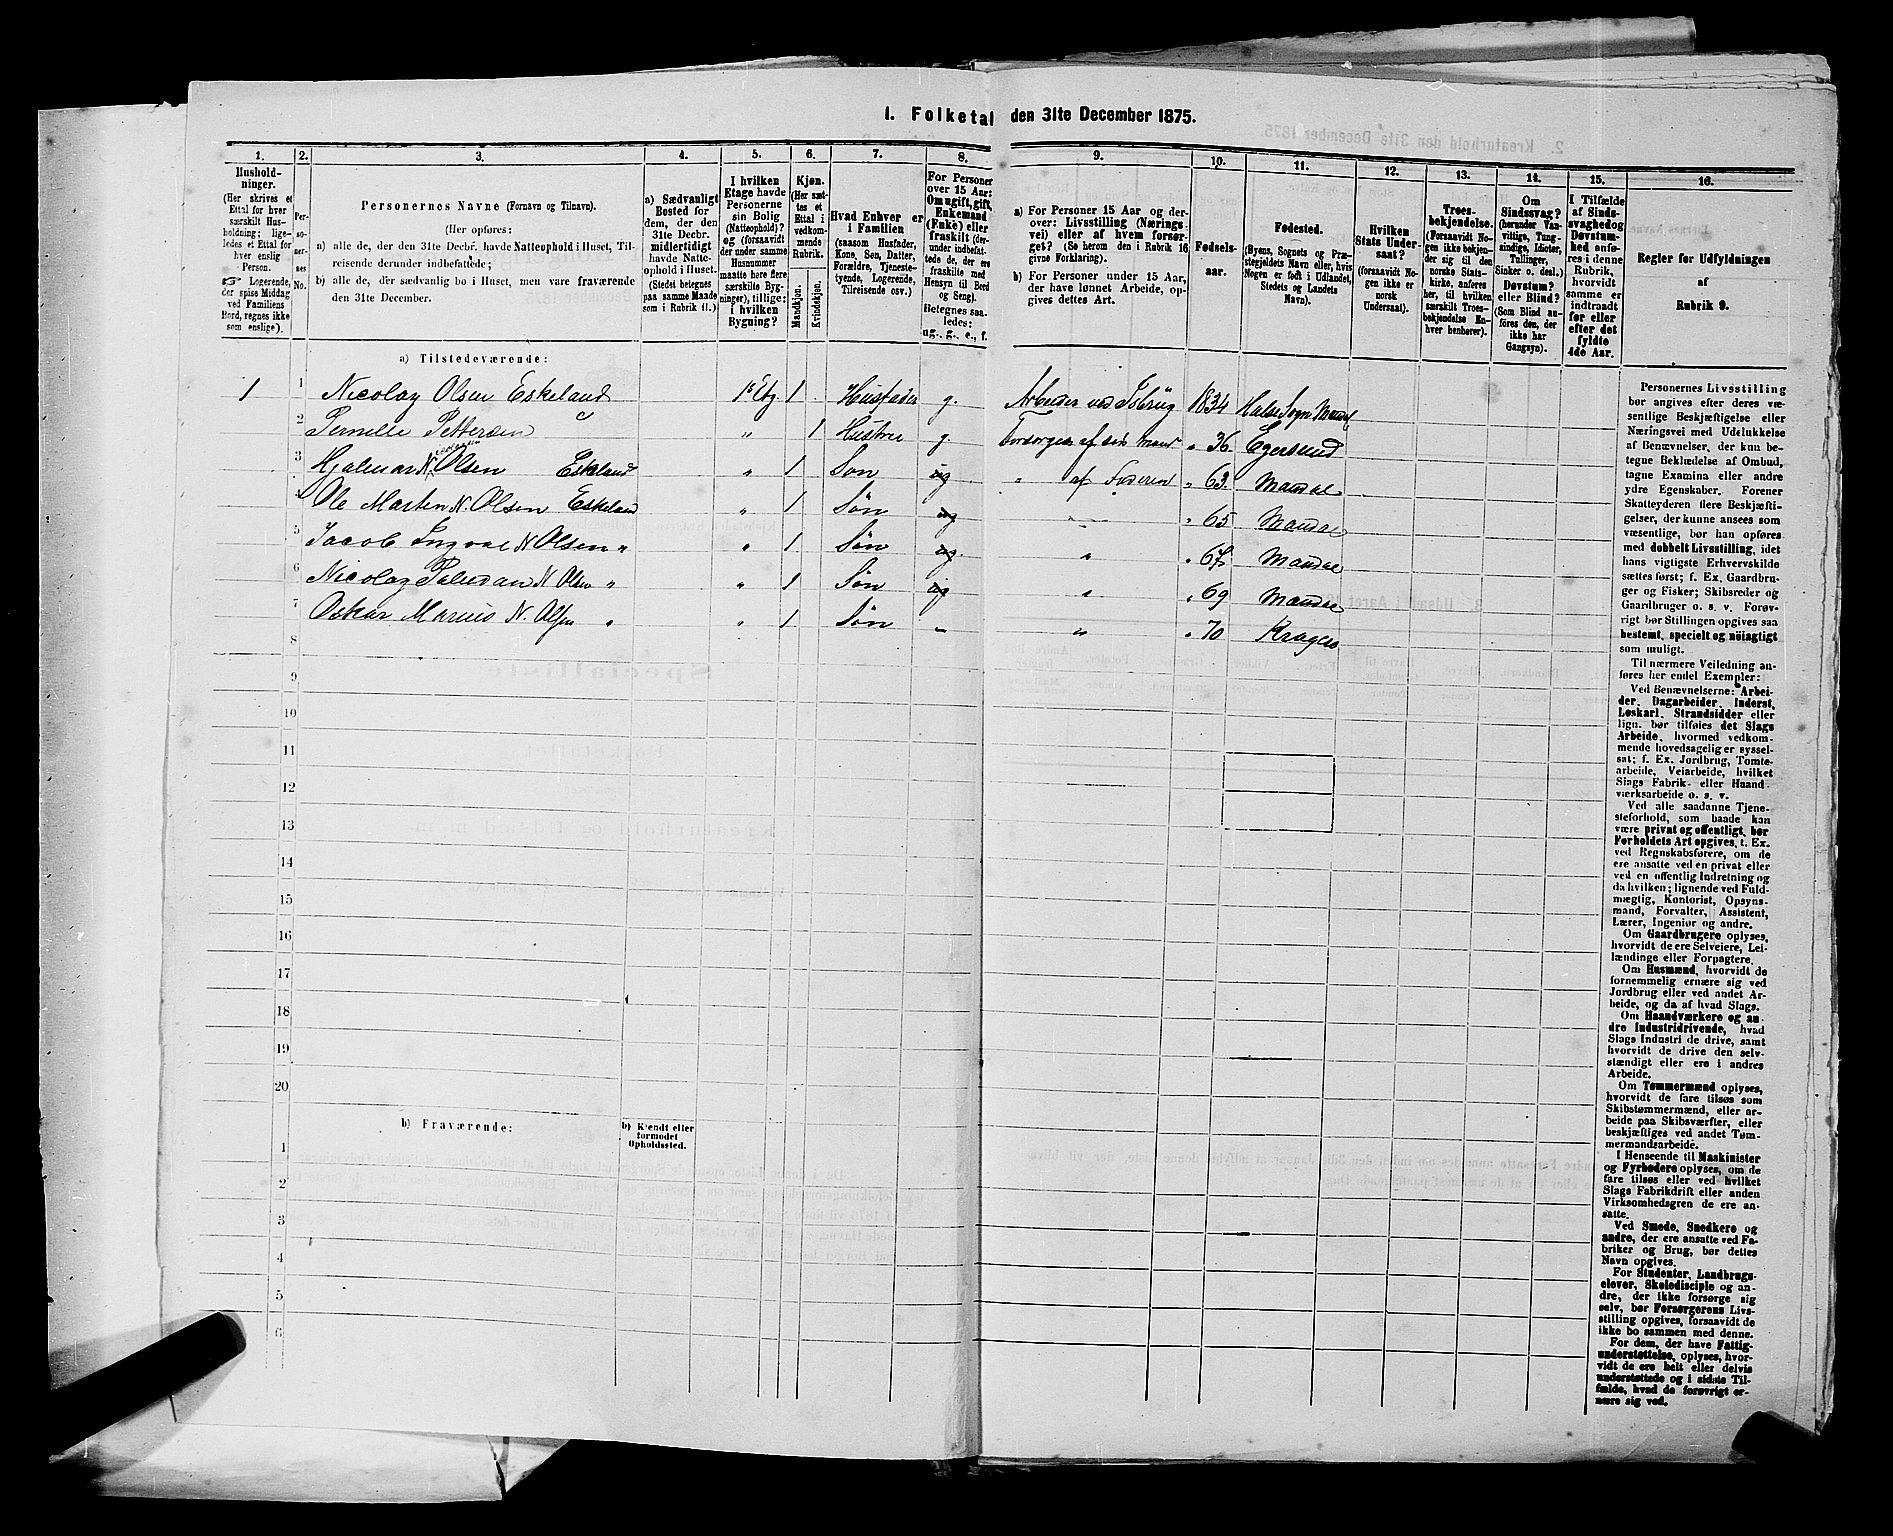 1. Folketal den 31te December 1875.
1. 2. 3. 4. 5. 6. 7. 8. 9. 10. 11. 12. 13. 14. 15. 16.
Hushold-
ninger.
(Her skrives et
Ettal for hver
særskilt Hus-
holdning; lige-
ledes et Ettal for
hver enslig
Person.
☞ Logerende,
der spise Middag
ved Familiens
Bord, regnes ikke
som enslige).
Per-
so-
ner-
nes
No.
Personernes Navne (Fornavn og Tilnavn).
(Her opføres:
a) alle de, der den 31te Decbr. havde Natteophold i Huset, Til-
reisende derunder indbefattede;
b) alle de, der sædvanlig bo i Huset, men vare fraværende
den 31te December.
a) Sædvanligt
Bosted for
dem, der den
31te Decbr.
midlertidigt
havde Natte-
ophold i Huset.
(Stedet betegnes
paa samme Maade
som i Rubrik 11.)
I hvilken
Etage havde
Personerne
sin Bolig
(Natteophold)?
og (forsaavidt
der under samme
Husnummer
maatte høre flere
særskilte Byg-
ninger), tillige:
i hvilken
Bygning?
Kjøn.
(Her sæt-
tes et
Ettal i
vedkom-
mende
Rubrik.
Mandkjøn.
Kvindekjøn.
Hvad Enhver er
i Familien
(saasom Husfader,
Kone, Søn, Datter,
Forældre, Tjeneste-
tyende, Logerende,
Tilreisende osv.)
For Personer
over 15 Aar:
Om ugift, gift,
Enkemand
(Enke) eller
fraskilt (der-
under indbefat-
tede de, der ere
fraskilte med
Hensyn til Bord
og Seng)
Betegnes saa-
ledes:
ug., g., e., f.
a) For Personer 15 Aar og der-
over: Livsstilling (Nærings-
vei) eller af hvem forsør-
get? (Se herom den i Rubrik 16
givne Forklaring).
b) For Personer under 15 Aar,
der have lønnet Arbeide, op-
gives dettes Art.
Fødsels-
aar.
Fødested.
(Byens, Sognets og Præ-
stegjeldets Navn eller, hvis
Nogen er født i Udlandet,
Stedets og Landets
Navn).
Hvilken
Stats Under-
saat?
(forsaavidt No-
gen ikke er
norsk
Undersaat).
Troes-
bekjendelse.
(Forsaavidt No-
gen ikke bekjen-
der sig til den
norske Stats-
kirke, anføres
her, til hvilken
særskilt Troes-
bekjendelse En-
hver henhører).
Om
Sindssvag?
(herunder Van-
vittige, Tung-
sindige, Idioter,
Tullinger,
Sinker o. desl.)
Døvstum?
eller Blind?
(Som Blind an-
føres den, der
ikke har
Gangsyn).
I Tilfælde
af Sinds-
svaghed og
Døvstum-
hed anfø-
res i denne
Rubrik,
hvorvidt
samme er
indtraadt
før eller
efter det
fyldte
4de Aar.
Regler for Udfyldningen
af
Rubrik 9.
a) Tilstedeværende:
1 1 Nicolay Olsen Eskeland 1st Etg. 1 Husfader g. Arbeider ved Isbrug 1834 Halse Sogn Mandal
2 Pernelle Pettersen " 1 Hustru g. Forsørges af sin Mand " 36 Egersund
3 Hjalmar N. Olsen Eskeland " 1 Søn ug " af Faderen " 63. Mandal
4 Ole Marten N. Olsen Eskeland " 1 Søn ug " " 65 Mandal
5 Jacob Ingval N Olsen " " 1 Søn ug " " 67 Mandal
6 Nicolay Paludan N Olsen " " 1 Søn ug " " 69 Mandal
7 Oskar Marius N. Olsen " " 1 Søn " " 70 Kragerø
8
9
10
11
12
13
14
15
16
17
18
19
20
b) Fraværende:
b) Kjendt eller
formodet
Opholdssted.
1
2
3
4
5
6
Personernes Livsstilling
bør angives efter deres væ-
sentlige Beskjæftigelse eller
Næringsvei med Udelukkelse
af Benævnelser, der kun be-
tegne Beklædelse af Ombud,
tagne Examina eller andre
ydre Egenskaber. Forener
Skatteyderen flere Beskjæfti-
gelser, der kunne ansees som
væsentlige, bør han opføres
med dobbelt Livsstilling, idet
hans vigtigste Erhvervskilde
sættes først; f. Ex. Gaardbru-
ger og Fisker; Skibsreder og
Gaardbruger o. s. v. Forøv-
rigt bør Stillingen opgives saa
bestemt, specielt og nøiagtigt
som muligt.
Til nærmere Veiledning an-
føres her endel Exempler:
Ved Benævnelserne: Arbei-
der, Dagarbeider, Inderst,
Løskarl, Strandsidder eller
lign. bør tilføies det Slags
Arbeide, hvormed vedkom-
mende hovedsagelig er syssel-
sat; f. Ex. Jordbrug, Tomte-
arbeide, Veiarbeide, hvilket
Slags Fabrik- eller Haand-
værksarbeide o. s. v.
Ved alle saadanne Tjene-
steforhold, som baade kan
være privat og offentligt, bør
Forholdets Art opgives, t. Ex.
ved Regnskabsførere, om de
ere ansatte ved en privat eller
ved en offentlig Indretning og
da hvilken; lignende ved Fuld-
mægtig, Kontorist, Opsyns-
mand, Forvalter, Assistent,
Lærer, Ingeniør og andre.
Om Gaardbrugere oplyses,
hvorvidt de ere Selveiere, Lei-
lændinge eller Forpagtere.
Om Husmænd, hvorvidt de
fornemmelig ernære sig ved
Jordbrug eller ved andet Ar-
beide, og da af hvad Slags.
Om Haandværkere og an-
dre Industridrivende, hvad
Slags Industri de drive, samt
hvorvidt de drive den selv-
stændigt eller ere i andres
Arbeide.
Om Tømmermænd oplyses,
hvorvidt de fare tilsøs som
Skibstømmermænd, eller ar-
beide paa Skibsværfter, eller
beskjæftiges ved andet Tøm-
mermandsarbeide.
I Henseende til Maskinister
og Fyrbødere oplyses, om de
fare tilsøs eller ved hvilket
Slags Fabrikdrift eller anden
Virksomhedsgren de ere an-
satte.
Ved Smede, Snedkere og
andre, der ere ansatte ved Fa-
briker og Brug, bør dettes
Navn opgives.
For Studenter, Landbrugs-
elever, Skoledisciple og an-
dre, der ikke forsørge sig
selv, bør Forsørgerens Livs-
stilling opgives, forsaavidt de
ikke bo sammen med denne.
For dem, der have Fattig-
understøttelse, oplyses, hvor-
vidt de ere helt eller delvis
understøttede og i sidste Til-
fælde, hvad de forøvrigt er-
nære sig ved.